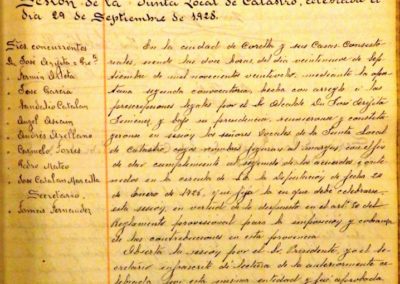 Sesión de la Junta Local de Catastro, celebrada el
día 29 de Septiembre de 1928.
Sres concurrentes
D. José Arigita
" Fermín Aldea
" José García
" Catalan
" Angel
" Andrés Arellano
" Carmelo Torres
" Pedro Mateo
" José Catalan
Secretario
" Tomás Fernández
En la ciudad de Corella y sus Casas Consisto-
riales, siendo las doce horas del día veintinueve de Sep-
tiembre de mil novecientos veintiocho, mediante la opor-
tuna segunda convocatoria, hecha con arreglo a las
prescripciones legales por el Sr Alcalde Dn José Arigita
Jiménez y bajo su presidencia, reunieron y constitu-
yeron en sesión los señores Vocales de la Junta Local
de Catastro, cuyos nombres figuran al margen, con el fin
de dar cumplimiento al segundo de los acuerdos
en la circular de la Exma Diputación de fecha 20
de Enero de 1926, que fija la en que debe celebrarse
esta sesión, en virtud de lo dispuesto en el art 50 del
Reglamento provisional para la imposición y cobranza
de las contribuciones en esta provincia.
Abierta la sesión por el Sr. Presidente, yo el se-
cretario infrascrito di lectura de la anteriormente ce-
lebrada que esta misma entidad y fué aprobada